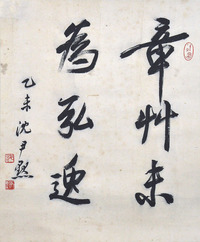 章艸未
為弘遠
乙未 沈尹默